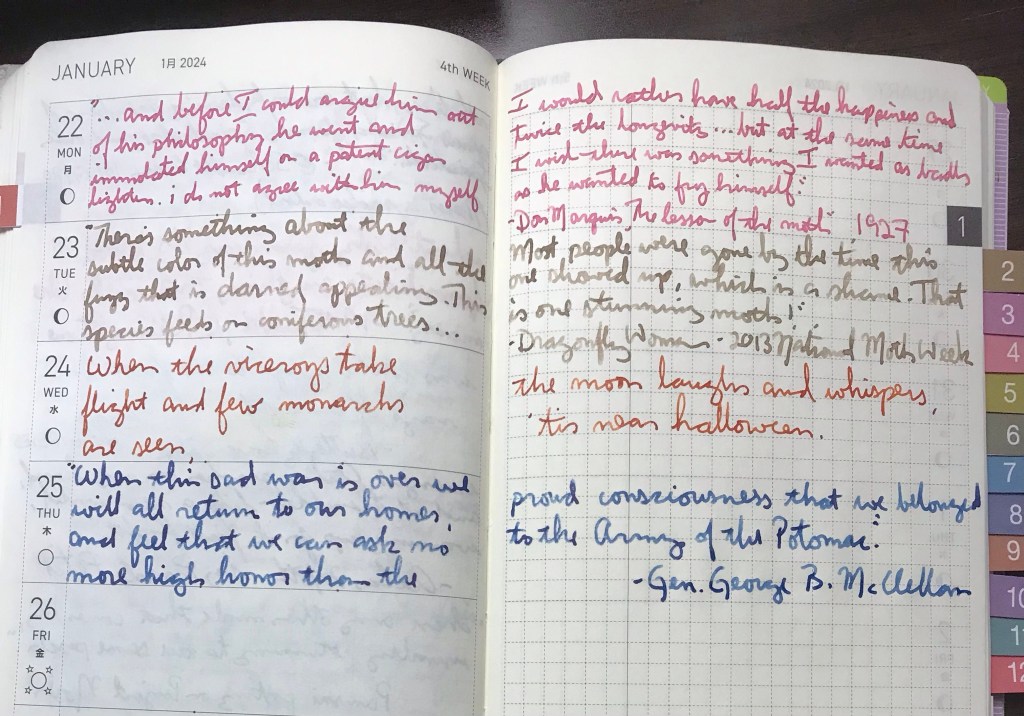 JANUARY 1月 2024
4th WEEK
22
MON
月
"...and before I could argue him out
of his philosophy he went and
immolated himself on a patent cigar
lighter. i do not agree with him myself
I would rather have half the happiness and
twice the longevity... but at the same time
I wish there was something I wanted as badly
as he wanted to fry himself."
-Don Marquis, "The lesson of the moth" 1927
23
TUE
火
"There's something about the
subtle color of this moth and all the
fuzz that is darned appealing. This
species feeds on coniferous trees...
Most people were gone by the time this
one showed up, which is a shame. That
is one stunning moth!"
-Dragonfly Woman - 2013 National Moth Week
24
WED
水
When the viceroys take
flight and few monarchs
are seen,
the moon laughs and whispers,
'tis near halloween.
25
THU
木
"When this sad war is over we
will all return to our homes,
and feel that we can ask no
more high honor than the
proud consciousness that we belonged
to the Army of the Potomac."
-Gen. George B. McClellan
26
FRI
金
1
2
3
4
5
6
7
8
9
10
11
12